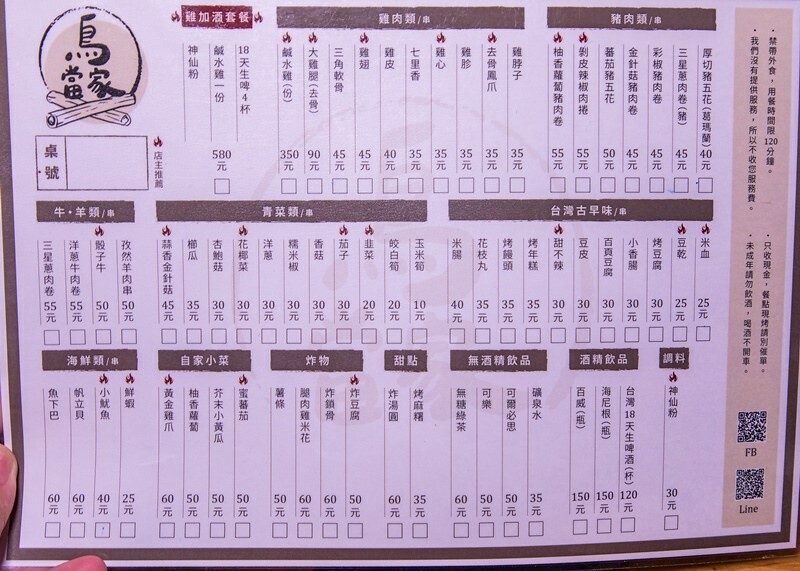 鳥當家
桌號
店主推薦
雞加酒套餐
18天生啤4杯
鹹水雞一份
神仙粉
580元
雞肉類/串
雞脖子 35元
去骨鳳爪 35元
雞胗 35元
雞心 35元
七里香 35元
雞皮 40元
雞翅 45元
三角軟骨 45元
大雞腿(去骨) 90元
鹹水雞(份) 350元
豬肉類/串
厚切豬五花(葛瑪蘭) 40元
三星蔥肉卷(豬) 45元
彩椒豬肉卷 45元
金針菇豬肉卷 45元
蕃茄豬五花 50元
剝皮辣椒肉捲 55元
柚香蘿蔔豬肉卷 55元
牛・羊類/串
孜然羊肉串 50元
骰子牛 50元
洋蔥牛肉卷 55元
三星蔥肉卷 55元
青菜類/串
玉米筍 10元
皎白筍 20元
韭菜 20元
茄子 30元
香菇 30元
糯米椒 30元
洋蔥 30元
花椰菜 30元
杏鮑菇 30元
櫛瓜 35元
蒜香金針菇 45元
台灣古早味/串
米血 25元
豆乾 25元
烤豆腐 30元
小香腸 30元
百頁豆腐 30元
豆皮 30元
甜不辣 30元
烤年糕 35元
烤饅頭 35元
花枝丸 35元
米腸 40元
海鮮類/串
鮮蝦 25元
小魷魚 40元
帆立貝 60元
魚下巴 60元
自家小菜
蜜蕃茄 50元
芥末小黃瓜 50元
柚香蘿蔔 50元
黃金雞爪 60元
炸物
炸豆腐 50元
炸鎖骨 60元
腿肉雞米花 60元
薯條 50元
甜點
烤麻糬 35元
炸湯圓 60元
無酒精飲品
礦泉水 35元
可爾必思 50元
可樂 50元
無糖綠茶 60元
酒精飲品
台灣18天生啤酒(杯) 120元
海尼根(瓶) 150元
百威(瓶) 150元
調料
神仙粉 30元
・禁帶外食，用餐時間限120分鐘。
・我們沒有提供服務，所以不收您服務費。
・只收現金，餐點現烤請別催單。
・未成年請勿飲酒，喝酒不開車。
FB
Line